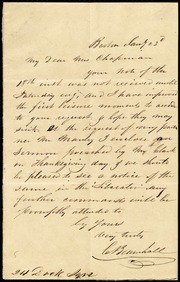 Boston Jany 23d
My Dear Mrs Chapman
Your Note of the
18th inst was not received until
Saturday and I have improved
the first leisure moments to accede
to your request, & hope they may
suit. At the request of my partner
Mr Manly I enclose a
Sermon preached by Mr Clark
on Thanksgiving day & we should
be pleased to see a notice of the
same in the Liberator. any
further commands will be
promptly attended to
by Yours
Very truly
24 Dock Sqre